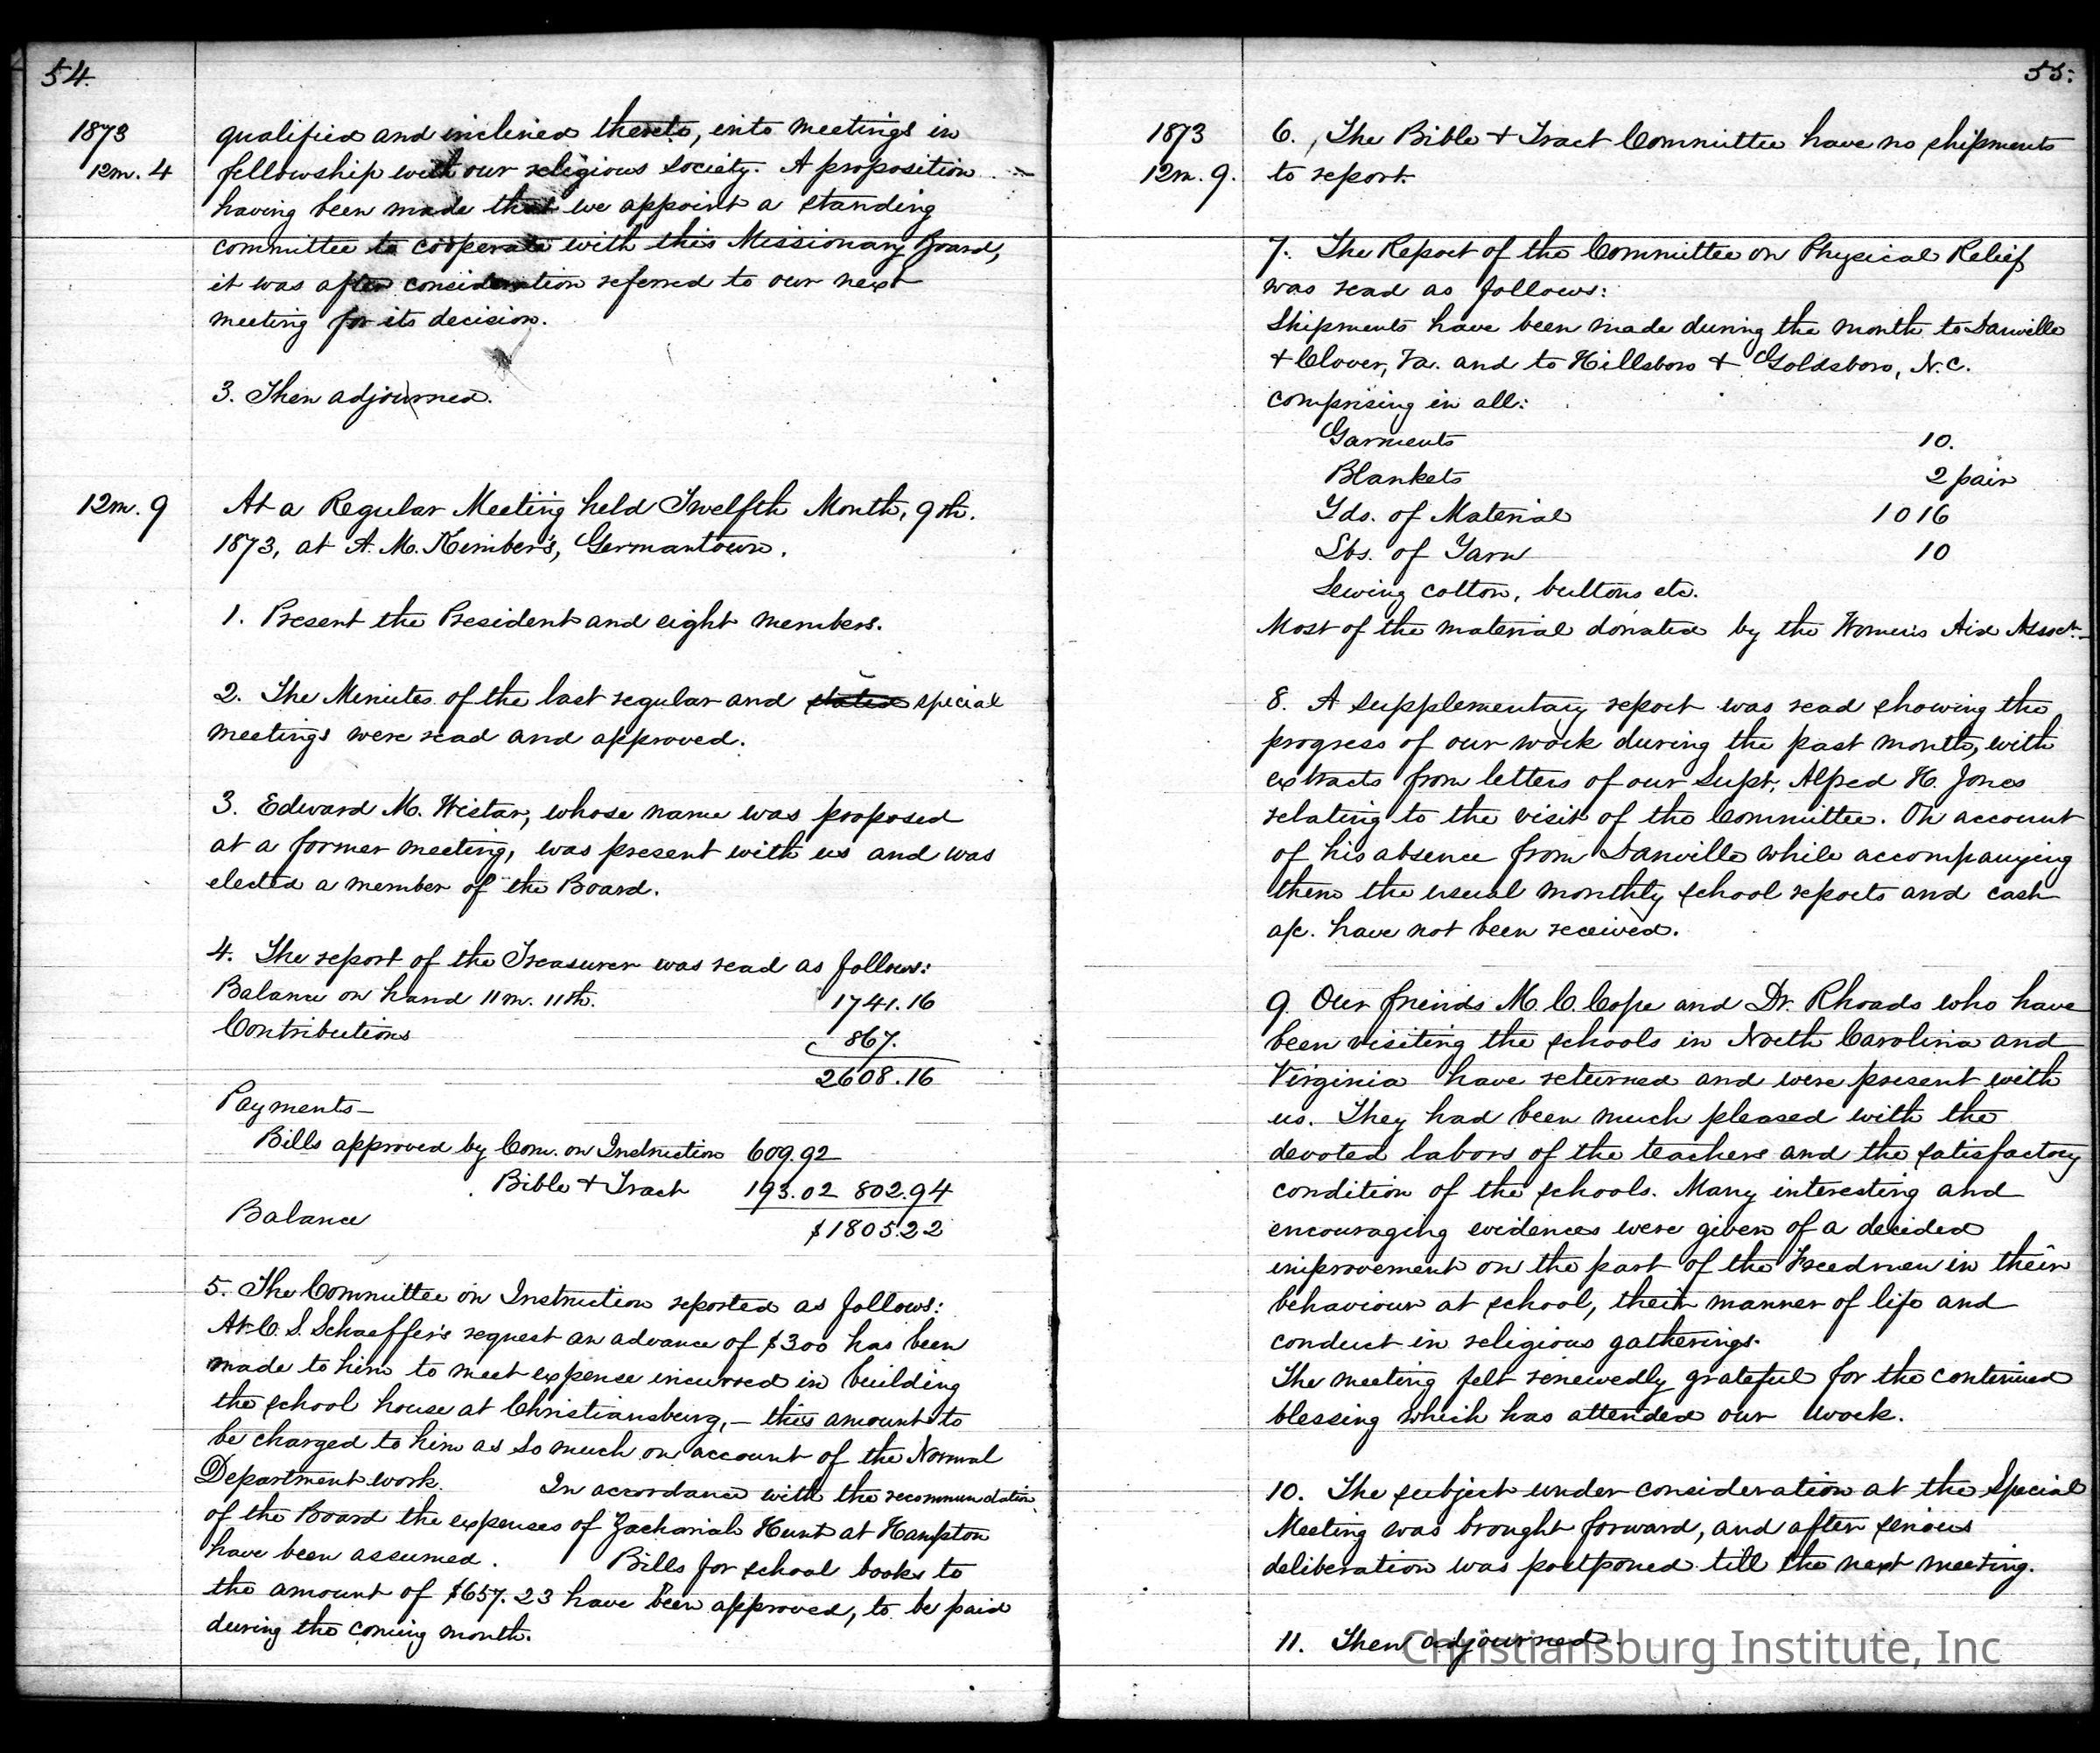 54.
1873
12m. 4
qualified and inclined thereto, into meetings in
fellowship with our religious society. A proposition
having been made that we appoint a standing
committee to coöperate with this Missionary Board,
it was after consideration referred to our next
meeting for its decision.
3. Then adjourned.
12m. 9
At a Regular Meeting held Twelfth Month, 9th.
1873, at A. M. Kimber's, Germantown.
1. Present the President and eight members.
2. The Minutes of the last regular and stated special
meetings were read and approved.
3. Edward M. Wistar, whose name was proposed
at a former meeting, was present with us and was
elected a member of the Board.
4. The report of the Treasurer was read as follows:
Balance on hand 11m. 11th. 1741.16
Contributions 867.
2608.16
Payments—
Bills approved by Com. on Instruction 609.92
Bible & Tract 193.02 802.94
Balance $1805.22
5. The Committee on Instruction reported as follows:
At C. S. Schaeffer's request an advance of $300 has been
made to him to meet expense incurred in building
the school house at Christiansburg,— this amount to
be charged to him as so much on account of the Normal
Department work. In accordance with the recommendation
of the Board the expenses of Zachariah Hunt at Hampton
have been assumed. Bills for school books to
the amount of $657.23 have been approved, to be paid
during the coming month.
55.
1873
12m. 9.
6. The Bible & Tract Committee have no shipments
to report.
7. The Report of the Committee on Physical Relief
was read as follows:
Shipments have been made during the month to Danville
& Clover, Va. and to Hillsboro & Goldsboro, N.C.
comprising in all:
Garments 10.
Blankets 2 pair
Yds. of Material 1016
Lbs. of Yarn 10
Sewing cotton, buttons etc.
Most of the material donated by the Women's Aid Assoct.
8. A supplementary report was read showing the
progress of our work during the past month, with
extracts from letters of our Supt. Alfred H. Jones
relating to the visit of the Committee. On account
of his absence from Danville while accompanying
them the usual monthly school reports and cash
a/c. have not been received.
9. Our friends M. C. Cope and Dr. Rhoads who have
been visiting the schools in North Carolina and
Virginia have returned and were present with
us. They had been much pleased with the
devoted labors of the teachers and the satisfactory
condition of the schools. Many interesting and
encouraging evidences were given of a decided
improvement on the part of the Freedmen in their
behaviour at school, their manner of life and
conduct in religious gatherings.
The meeting felt renewedly grateful for the continued
blessing which has attended our work.
10. The subject under consideration at the Special
Meeting was brought forward, and after serious
deliberation was postponed till the next meeting.
11. Then adjourned.
Christiansburg Institute, Inc